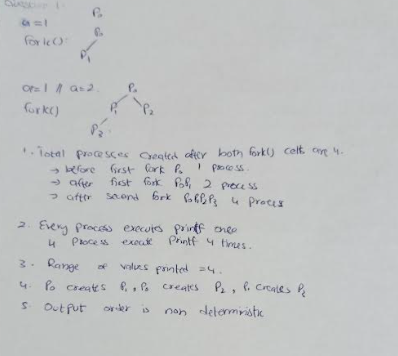 Question 1:
P₀
a=1
P₀
fork()
P₁
a=1 // a=2.
P₀
fork()
P₁ P₂
P₂
1. Total processes created after both fork() calls are 4.
→ before first fork P₀ 1 process.
→ after first fork P₀P₁ 2 process
→ after second fork P₀P₁P₂P₃ 4 process
2. Every process executes printf once
4 process execute Printf 4 times.
3. Range of values printed = 4.
4. P₀ creates P₁, P₀ creates P₂, P₁ creates P₂
5. Output order is non deterministic